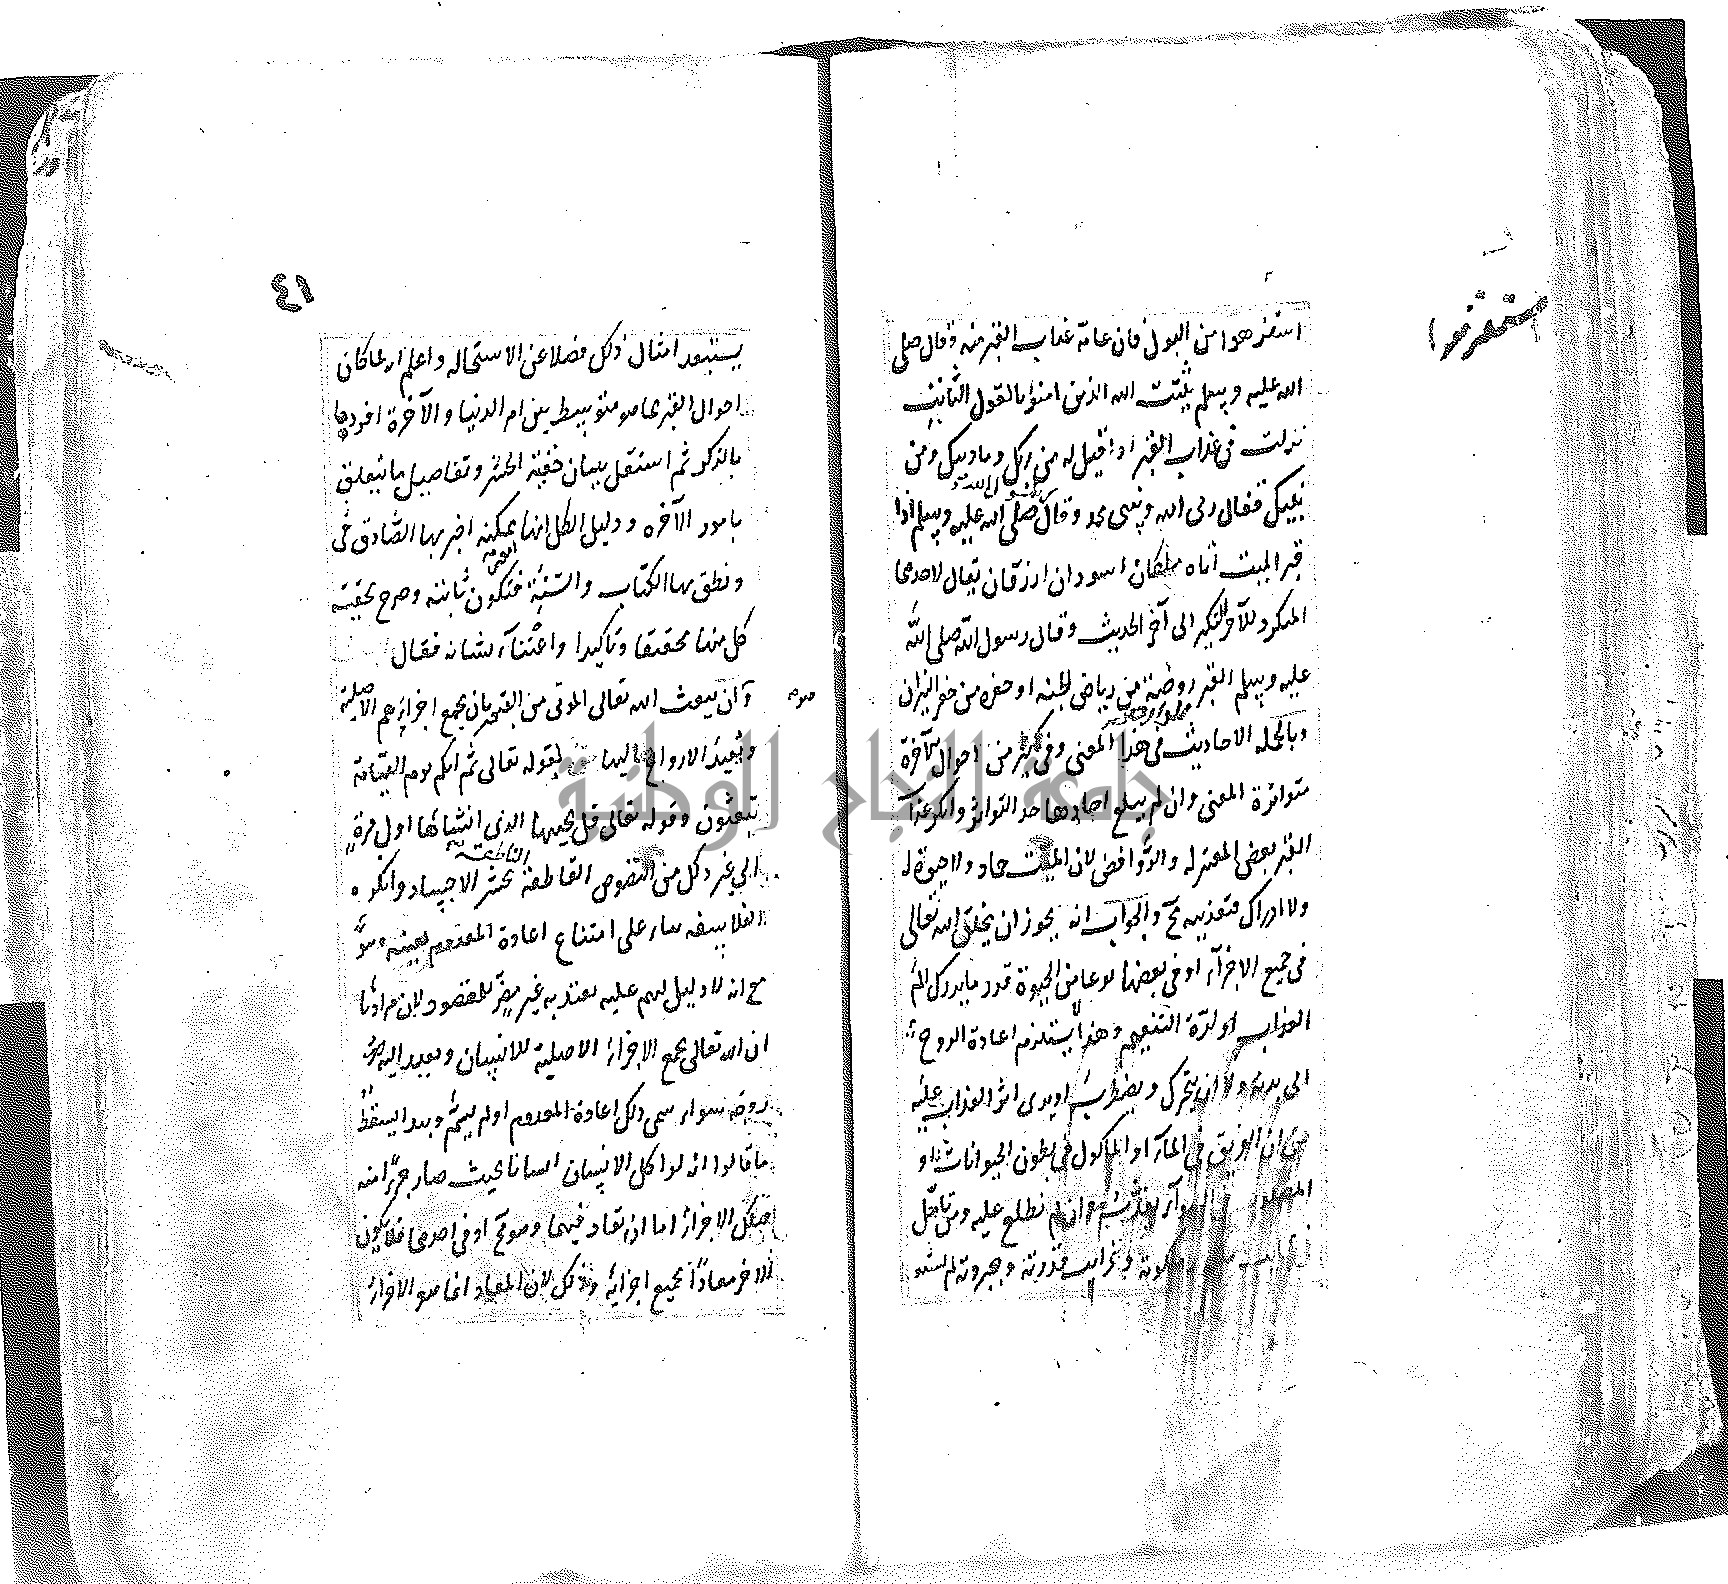 استنزهوا من البول فان عامة عذاب القبر منه وقال صلى
الله عليه وسلم يثبت الله الذين امنوا بالقول الثابت
نزلت في عذاب القبر اذا قيل له من ربك وما دينك ومن
نبيك فيقال ربى الله ونبيى محمد وقال صلى الله عليه وسلم اذا
قبر الميت أتاه ملكان اسودان ازرقان يقال لاحدهما
المنكر وللآخر النكير الى آخر الحديث وقال رسول الله صلى الله
عليه وسلم القبر روضة من رياض الجنة او حفرة من حفر النيران
وبالجملة الاحاديث في هذا المعنى وفى كثير من احوال الآخرة
متواترة المعنى وان لم يبلغ احادها حد التواتر وانكر عذاب
القبر بعض المعتزله والروافض لان الميت جماد ولا حيوة له
ولا ادراك فتعذيبه مح والجواب انه يجوز ان يخلق الله تعالى
فى جميع الاجزآء او فى بعضها نوعا من الحيوة قدر ما يدرك الم
العذاب او لذة التنعيم وهذا لا يستلزم اعادة الروح
الى بدنه ولا ان يتحرك ويضطرب او يرى اثر العذاب عليه
حتى ان الغريق فى المآء او المأكول فى بطون الحيوانات او
المصلوب فى الهوآء يعذب وان لم نطلع عليه ومن تأمل
فى عجايب ملكوته وغرايب قدرته وجبروته لم يستبعد
٤١
يستبعد امثال ذلك فضلا عن الاستحاله واعلم انه لما كان
احوال القبر مما هو متوسط بين امر الدنيا والآخرة افردها
بالذكر ثم اشتغل ببيان حقية الحشر وتفاصيل ما يتعلق
بامور الآخره ودليل الكل انها امور ممكنه اخبر بها الصادق
ونطق بها الكتاب والسنة فتكون ثابتة وصرح بحقية
كل منها تحقيقا وتأكيدا واعتنآء بشانه فقال
وان يبعث الله تعالى الموتى من القبور بان يجمع اجزاءهم الاصلية
ويعيد الارواح اليها حق لقوله تعالى ثم انكم يوم القيامة
تبعثون وقوله تعالى قل يحييها الذى انشأها اول مرة
الى غير ذلك من النصوص القاطعة الناطقة بحشر الاجساد وانكره
الفلاسفه بناء على امتناع اعادة المعدوم بعينه وهو
مع انه لا دليل لهم عليه يعتد به غير مضر للمقصود لان مرادنا
ان الله تعالى يجمع الاجزاء الاصلية للانسان ويعيد اليه
روحه سواء سمى ذلك اعادة المعدوم او لم يسم وبهذا يسقط
ما قالوا انه لو اكل الانسان انسانا بحيث صار جزءا منه
فتلك الاجزاء اما ان تعاد فيهما وهو مح او فى احدهما فلا يكون
الاخر معادا بجميع اجزايه وذلك لان المعاد انما هو الاجزاء
جامعة النجاح الوطنية